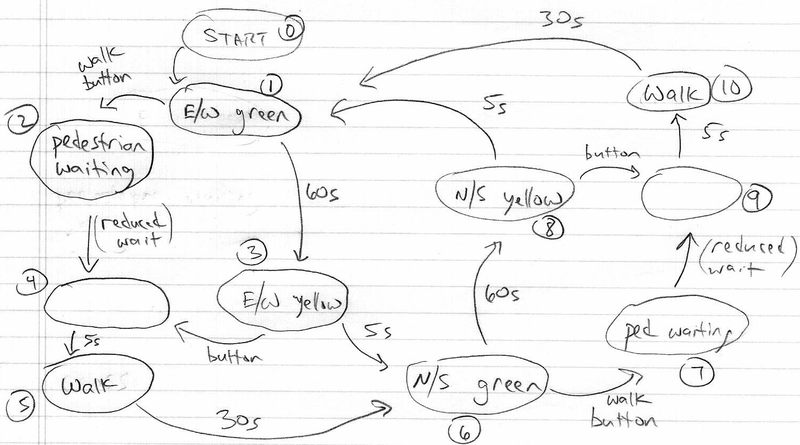 START 0
30s
walk
button
1
E/W green
5s
Walk 10
2
pedestrian
waiting
5s
button
60s
N/S yellow
8
9
(reduced
wait)
3
(reduced
wait)
4
E/W yellow
60s
ped waiting
7
5s
button
5s
Walk
5
N/S green
6
walk
button
30s